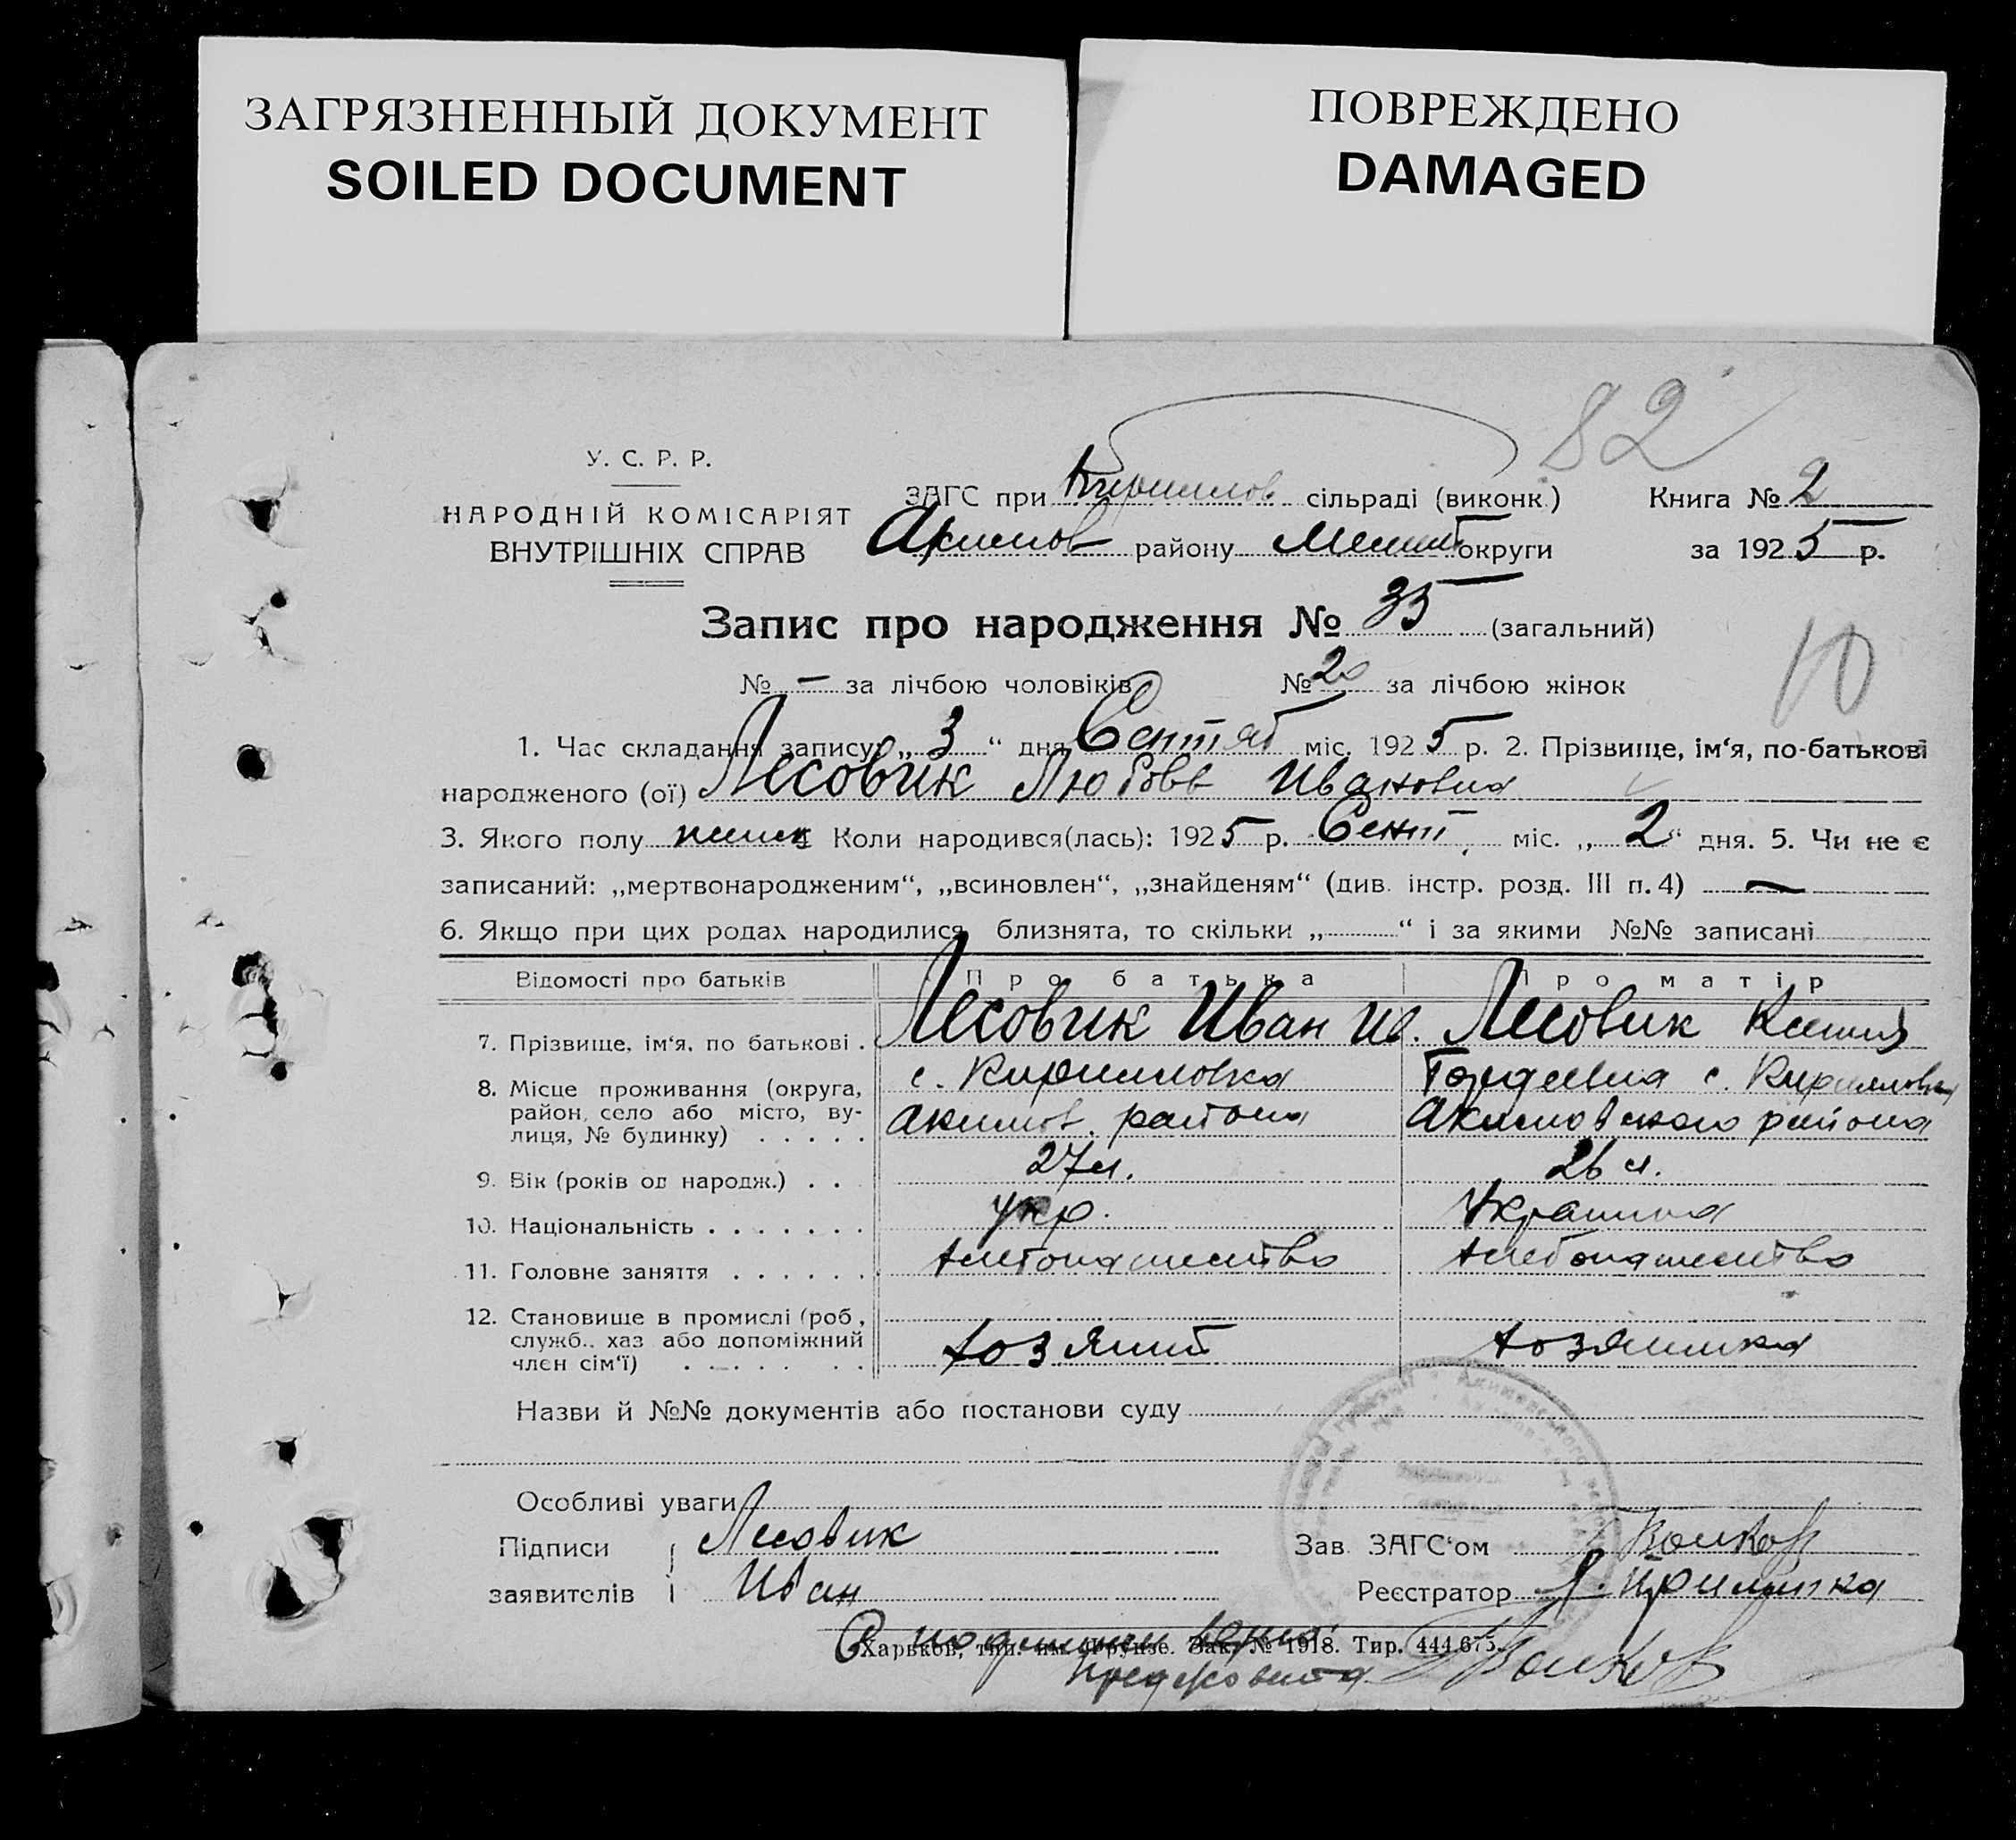 ЗАГРЯЗНЕННЫЙ ДОКУМЕНТ
SOILED DOCUMENT
ПОВРЕЖДЕНО
DAMAGED
82
У. С. Р. Р.
НАРОДНІЙ КОМІСАРІЯТ
ВНУТРІШНІХ СПРАВ
ЗАГС при Кирилов сільраді (виконк.) Книга № 2
Акимов району Мелит округи за 1925 р.
Запис про народження № 35 (загальний)
10
№ — за лічбою чоловіків № 20 за лічбою жінок
1. Час складання запису: „3“ дня Сентяб міс. 1925 р. 2. Прізвище, ім‘я, по-батькові
народженого (ої) Лесовик Любовь Ивановна
3. Якого полу 4 Коли народився(лась): 1925 р. Сент. міс. „2“ дня. 5. Чи не є
записаний: „мертвонародженим“, „всиновлен“, „знайденям“ (див. інстр. розд. III п. 4) —
6. Якщо при цих родах народилися близнята, то скільки „ “ і за якими №№ записані
Відомості про батьків Про батька Про матір
7. Прізвище, ім‘я, по батькові . Лесовик Иван Ив. Лесовик Ксения
8. Місце проживання (округа, район, село або місто, вулиця, № будинку) . . . . .
с. Кирилловка
Акимов. района
Гордеевна с. Кирилловка
Акимовского района
9. Вік (років од народж.) . . 27 л. 26 л.
10. Національність . . . . . . . укр. Украинка
11. Головне заняття . . . . . . хлебопашество хлебопашество
12. Становище в промислі (роб., служб., хаз. або допоміжний член сім‘ї) . . . . . . .
хозяин хозяинка
Назви й №№ документів або постанови суду
Особливі уваги
Підписи заявителів
Лесовик
Иван
Зав. ЗАГС‘ом Волков
Реєстратор
С подлинным верно:
Харьков, тип. им. Фрунзе. Зак. № 1918. Тир. 444.675.
Предсовета Волков